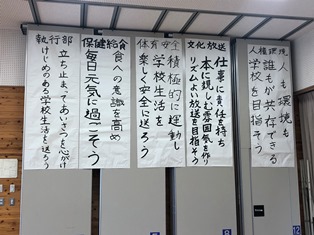 人権環境
人も環境も
誰もが共存できる
学校を目指そう
文化放送
仕事に責任を持ち
本に親しむ雰囲気を作り
リズムよい放送を目指そう
体育安全
積極的に運動し
学校生活を
楽しく安全に送ろう
保健給食
食への意識を高め
毎日元気に過ごそう
執行部
立ち止まってあいさつを心がけ
けじめのある学校生活を送ろう
8
9
12